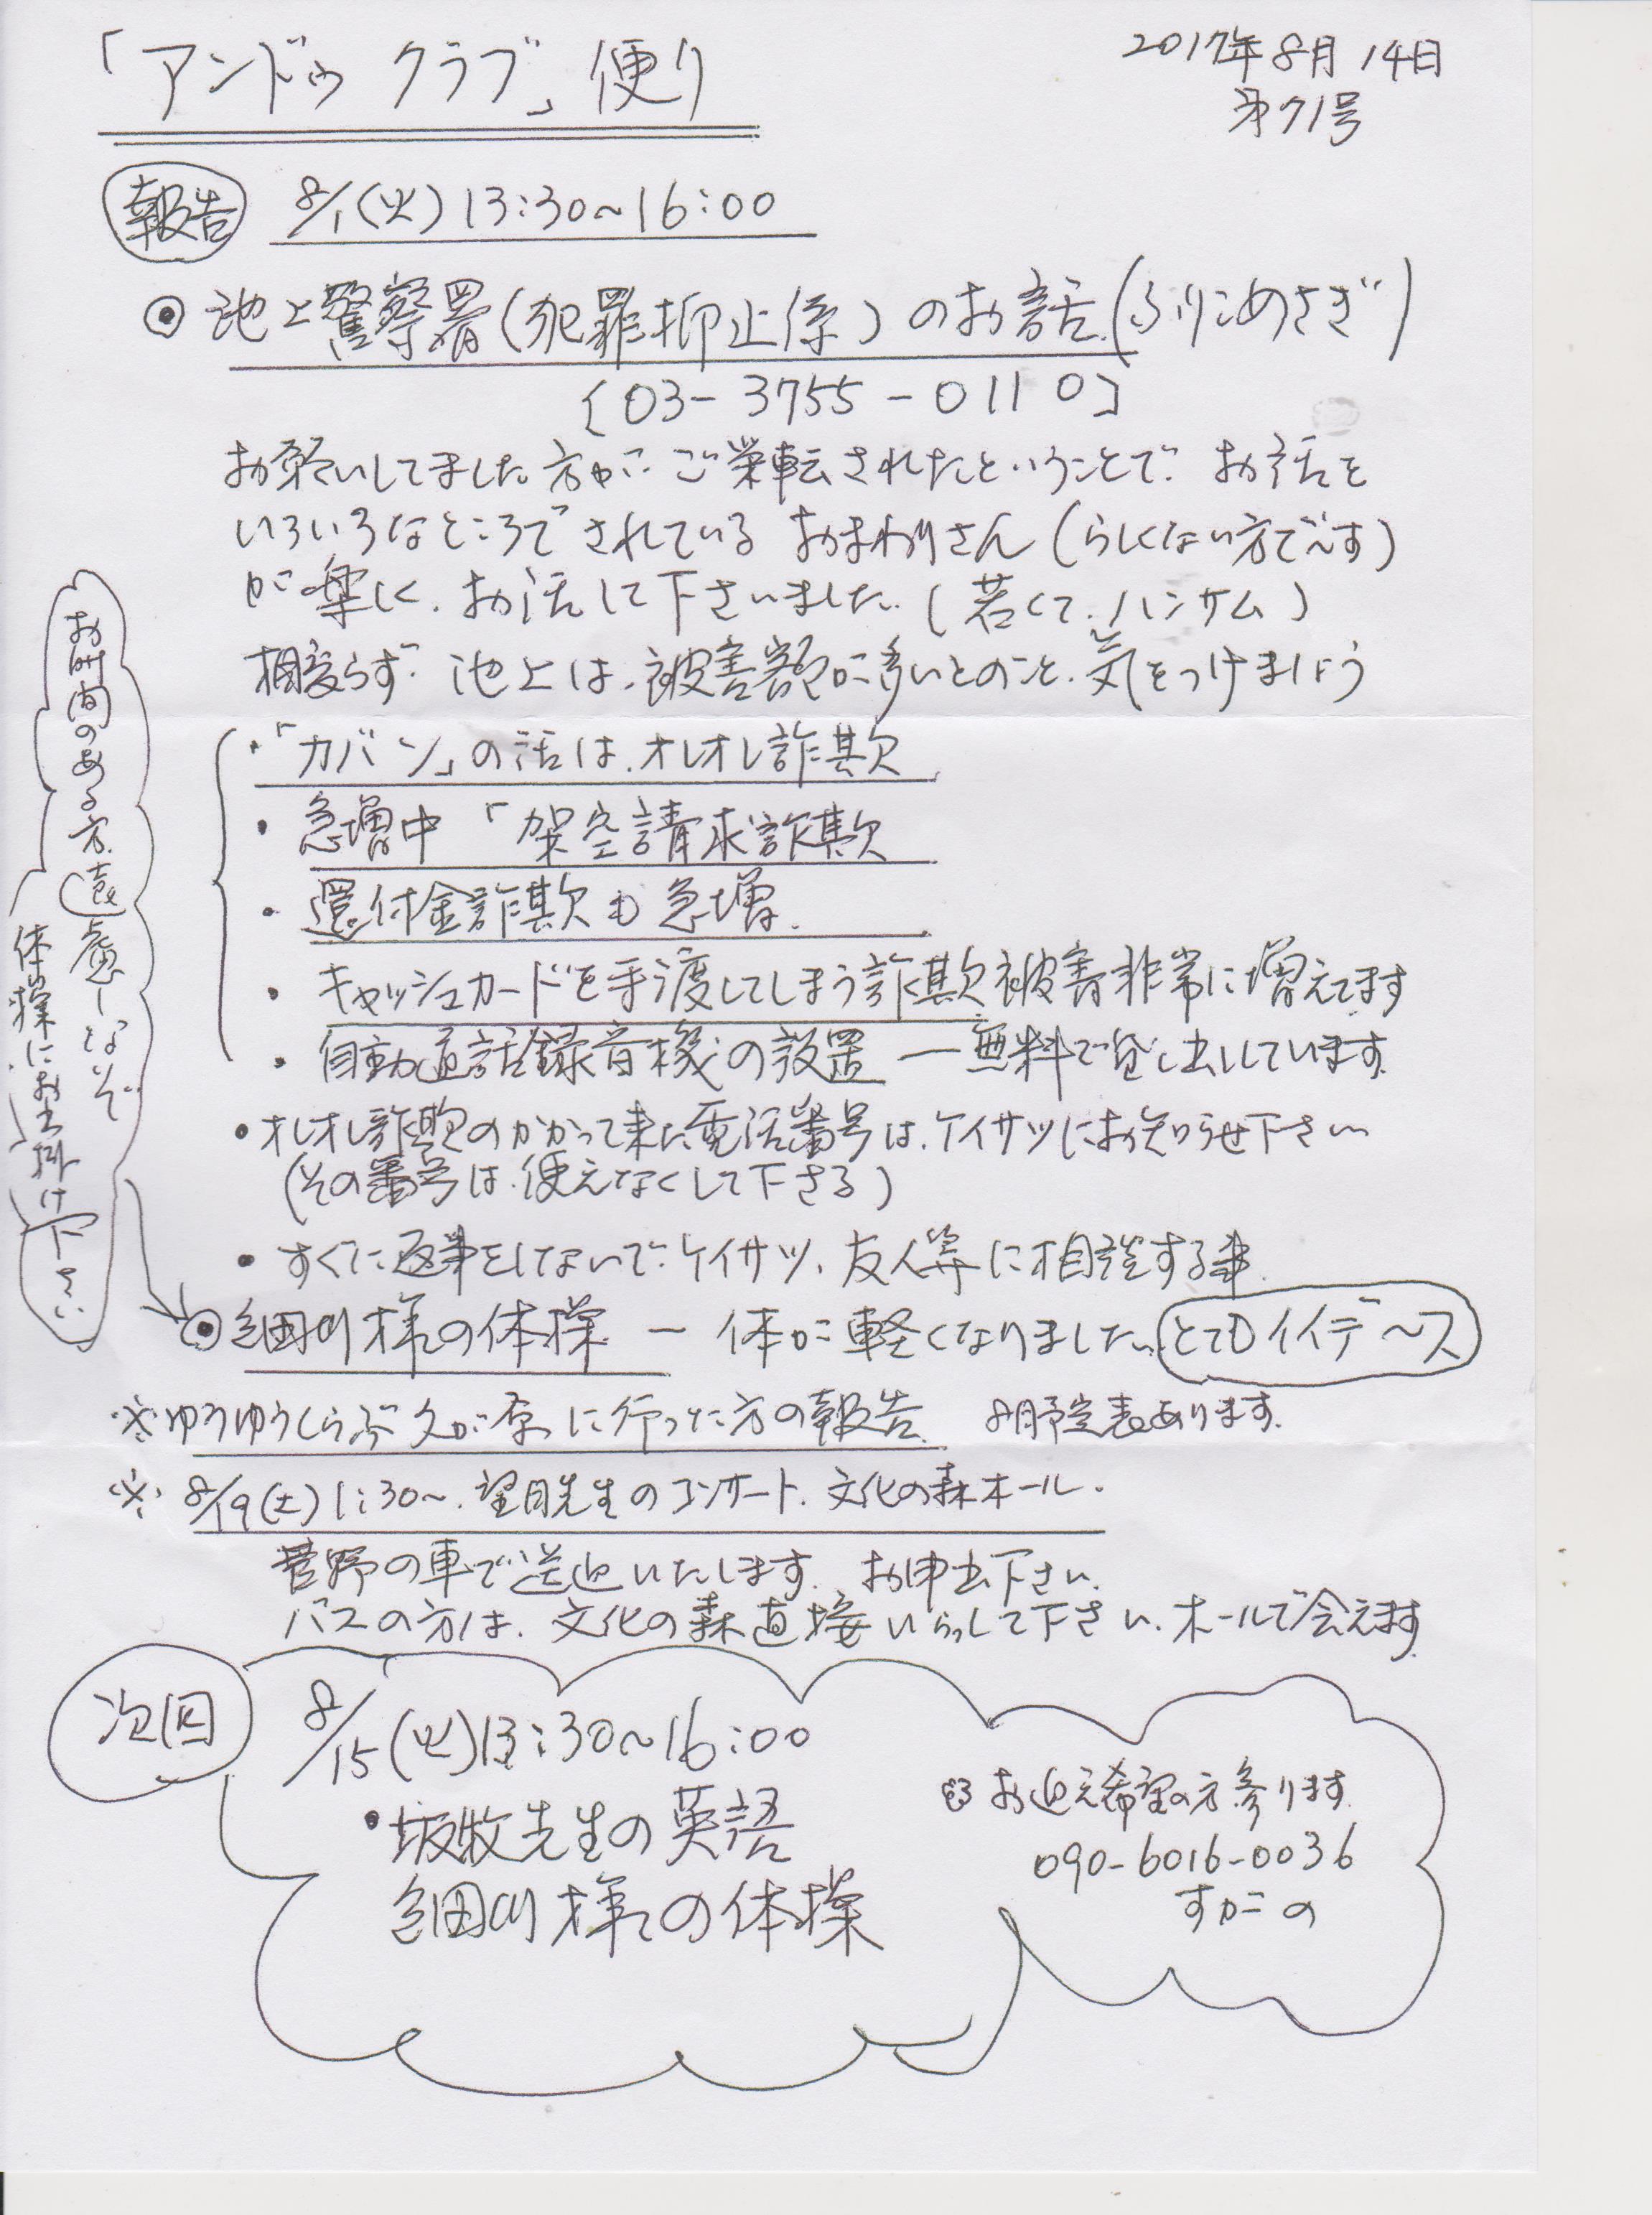 「アンドゥ クラブ」便り
2017年8月14日
第71号
報告 8/1(火)13:30〜16:00
◎池上警察署(犯罪抑止係)のお話(ふりこめさぎ)
[03-3755-0110]
お願いしてました方が ご栄転されたということで お話を
いろいろなところでされている おまわりさん(らしくない方です)
が楽しく、お話して下さいました。(若くて、ハンサム)
相変らず 池上は、被害額が多いとのこと、気をつけましょう
・「カバン」の話は、オレオレ詐欺
・急増中「架空請求詐欺
・還付金詐欺も急増、
・キャッシュカードを手渡してしまう詐欺被害非常に増えてます
・自動通話録音機の設置 ー無料で貸し出ししています。
・オレオレ詐欺のかかって来た電話番号は、ケイサツにお知らせ下さい
(その番号は、使えなくして下さる)
・すぐに返事をしないで、ケイサツ、友人等に相談する事。
お時間のある方、遠慮しないで
体操にお出掛け下さい
◎細川様の体操 ー 体が軽くなりました。とてもイイデ〜ス
※ゆうゆうくらぶ久が原に行った方の報告、 8月予定表あります。
※ 8/19(土)1:30〜、望月先生のコンサート、文化の森ホール、
菅野の車で送迎いたします、お申出下さい、
バスの方は、文化の森直接いらっして下さい、ホールで会えます。
次回 8/15(火)13:30〜16:00
・坂牧先生の英語
細川様の体操
お迎え希望の方、参ります。
090-6016-0036
すがの